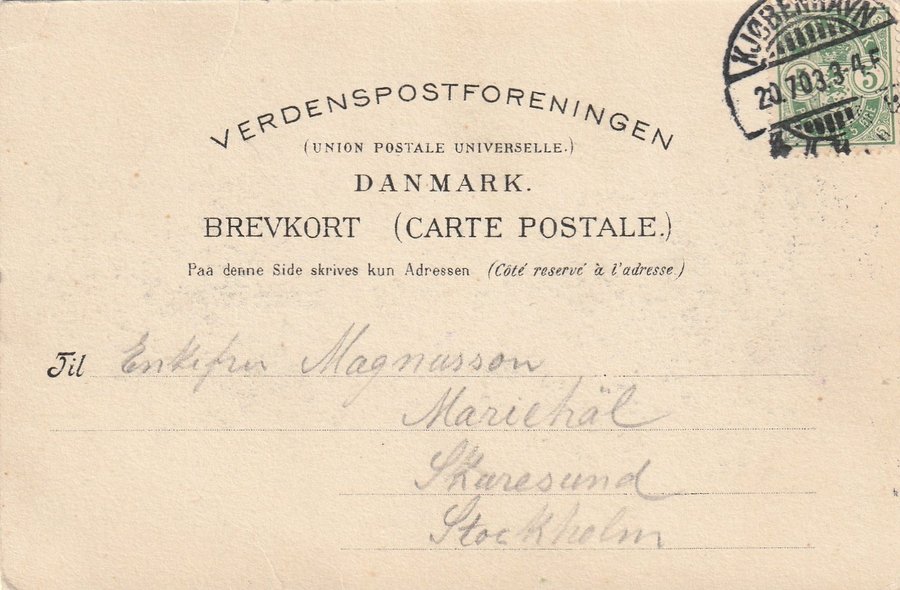 KJØBENHAVN
20.7.03.3-4.E
5 5
VERDENSPOSTFORENINGEN
(UNION POSTALE UNIVERSELLE.)
DANMARK.
BREVKORT (CARTE POSTALE.)
Paa denne Side skrives kun Adressen (Côté reservé à l'adresse.)
Til Enkefru Magnusson
Mariehäl
Skaresund
Stockholm